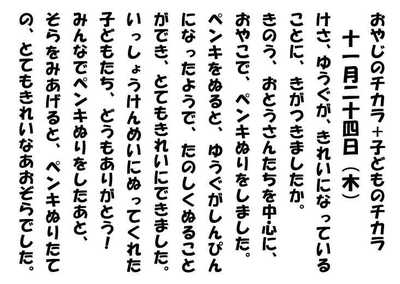 おやじのチカラ+子どものチカラ
十一月二十四日(木)
けさ、ゆうぐが、きれいになっている
ことに、きがつきましたか。
きのう、おとうさんたちを中心に、
おやこで、ペンキぬりをしました。
ペンキをぬると、ゆうぐがしんぴん
になったようで、たのしくぬること
ができ、とてもきれいにできました。
いっしょうけんめいにぬってくれた
子どもたち、どうもありがとう!
みんなでペンキぬりをしたあと、
そらをみあげると、ペンキぬりたて
の、とてもきれいなあおぞらでした。